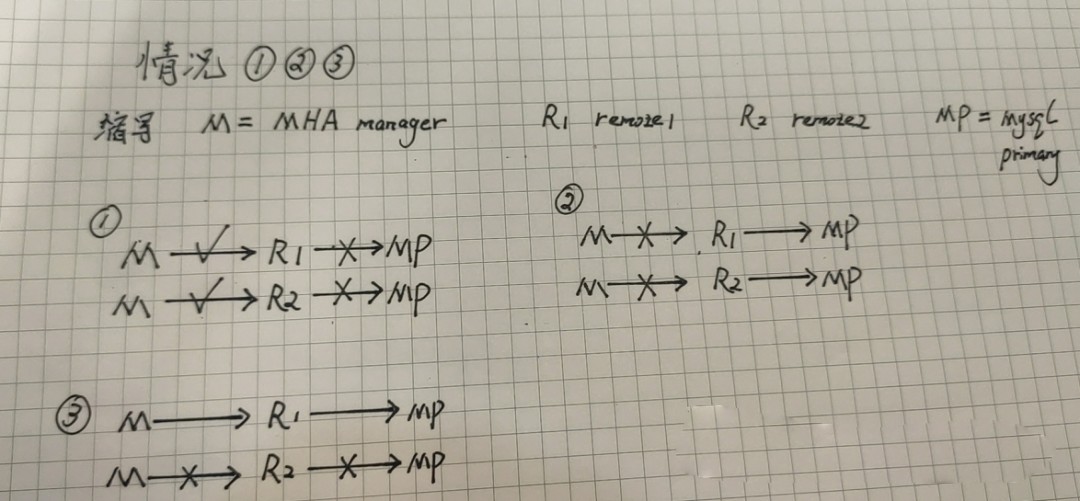 情况 ① ② ③
缩写 M = MHA manager R1 remote1 R2 remote2 MP = mysql
primary
①
M ✓→ R1 ✗→ MP
M ✓→ R2 ✗→ MP
②
M ✗→ R1 → MP
M ✗→ R2 → MP
③
M → R1 → MP
M ✗→ R2 ✗→ MP